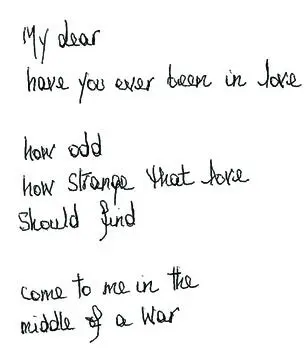 My dear
have you ever been in love
how odd
how strange that love
should find
come to me in the
middle of a war